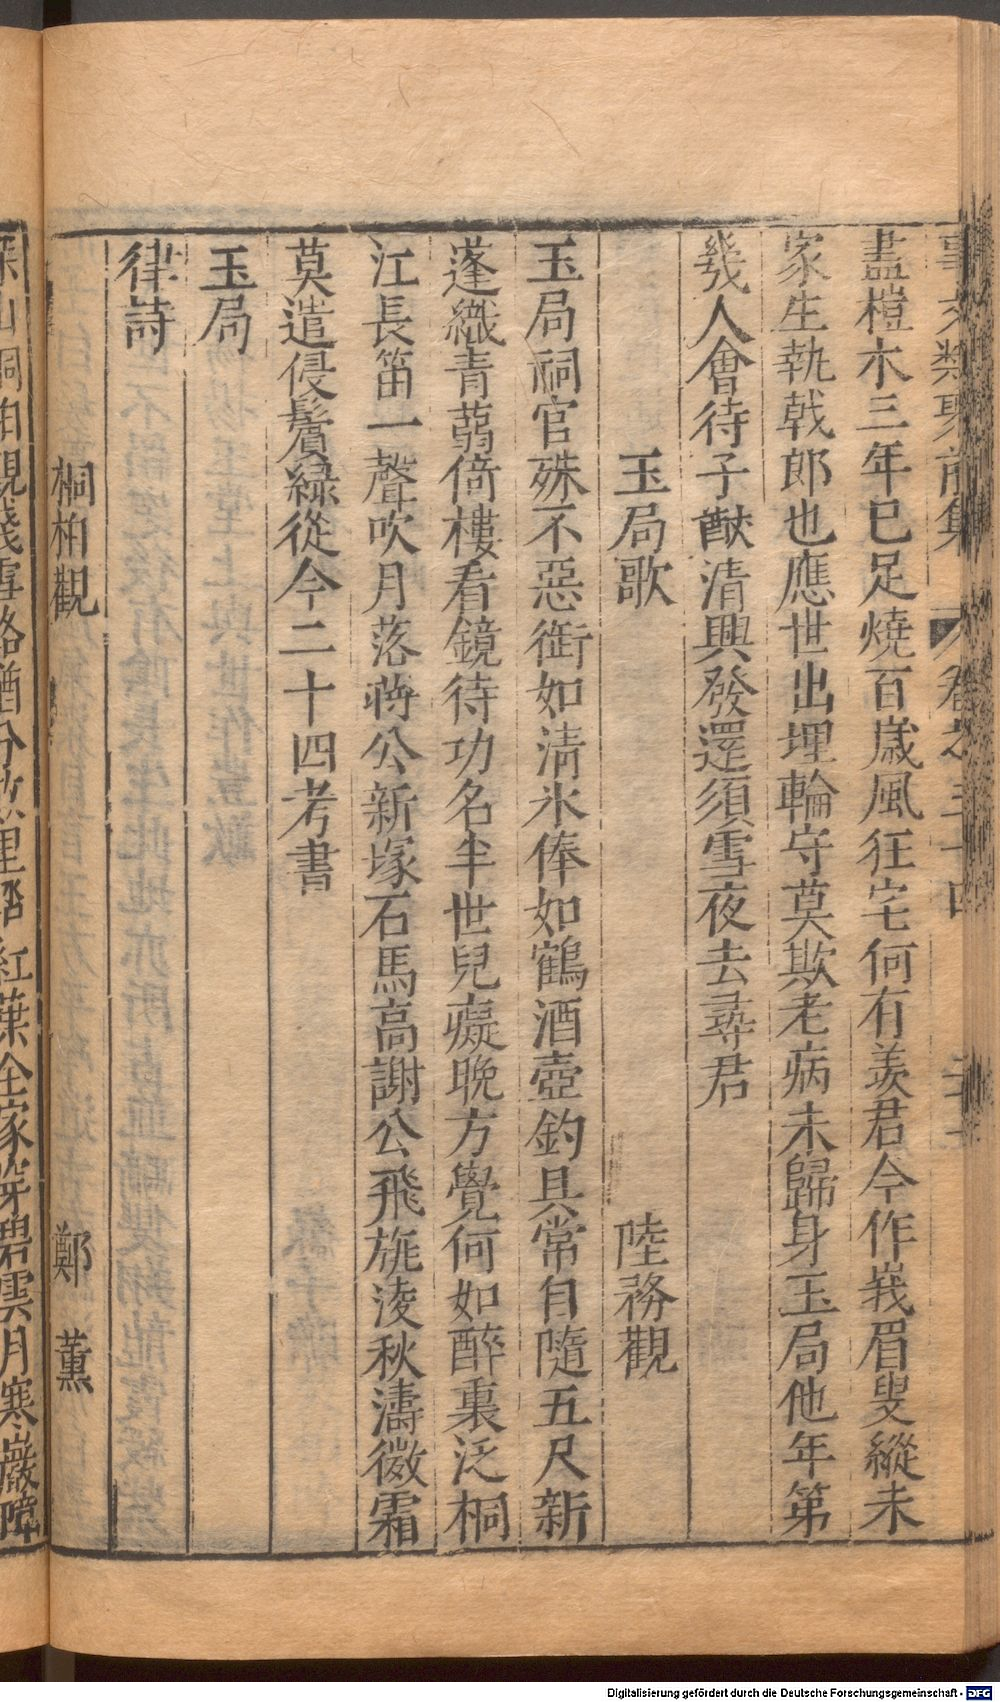 事文類聚前集 卷之三十四
盡榿木三年已足燒百歲風狂宅何有羨君今作峩眉叟縱未
家生執戟郎也應世出埋輪守莫欺老病未歸身玉局他年第
幾人會待子猷清興發還須雪夜去尋君
玉局歌 陸務觀
玉局祠官殊不惡銜如清氷俸如鶴酒壺釣具常自隨五尺新
蓬織青蒻倚樓看鏡待功名半世兒癡晚方覺何如醉裏泛桐
江長笛一聲吹月落蒋公新塚石馬高謝公飛旐淩秋濤微霜
莫遣侵鬢綠從今二十四考書
玉局
律詩
桐柏觀 鄭薰
深山桐柏觀殘雪路猶分數里踏紅葉全家穿碧雲月寒巖障
Digitalisierung gefördert durch die Deutsche Forschungsgemeinschaft - DFG